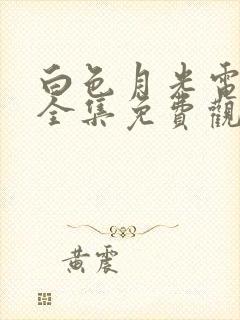 白色月光電
全集免費觀
黃震